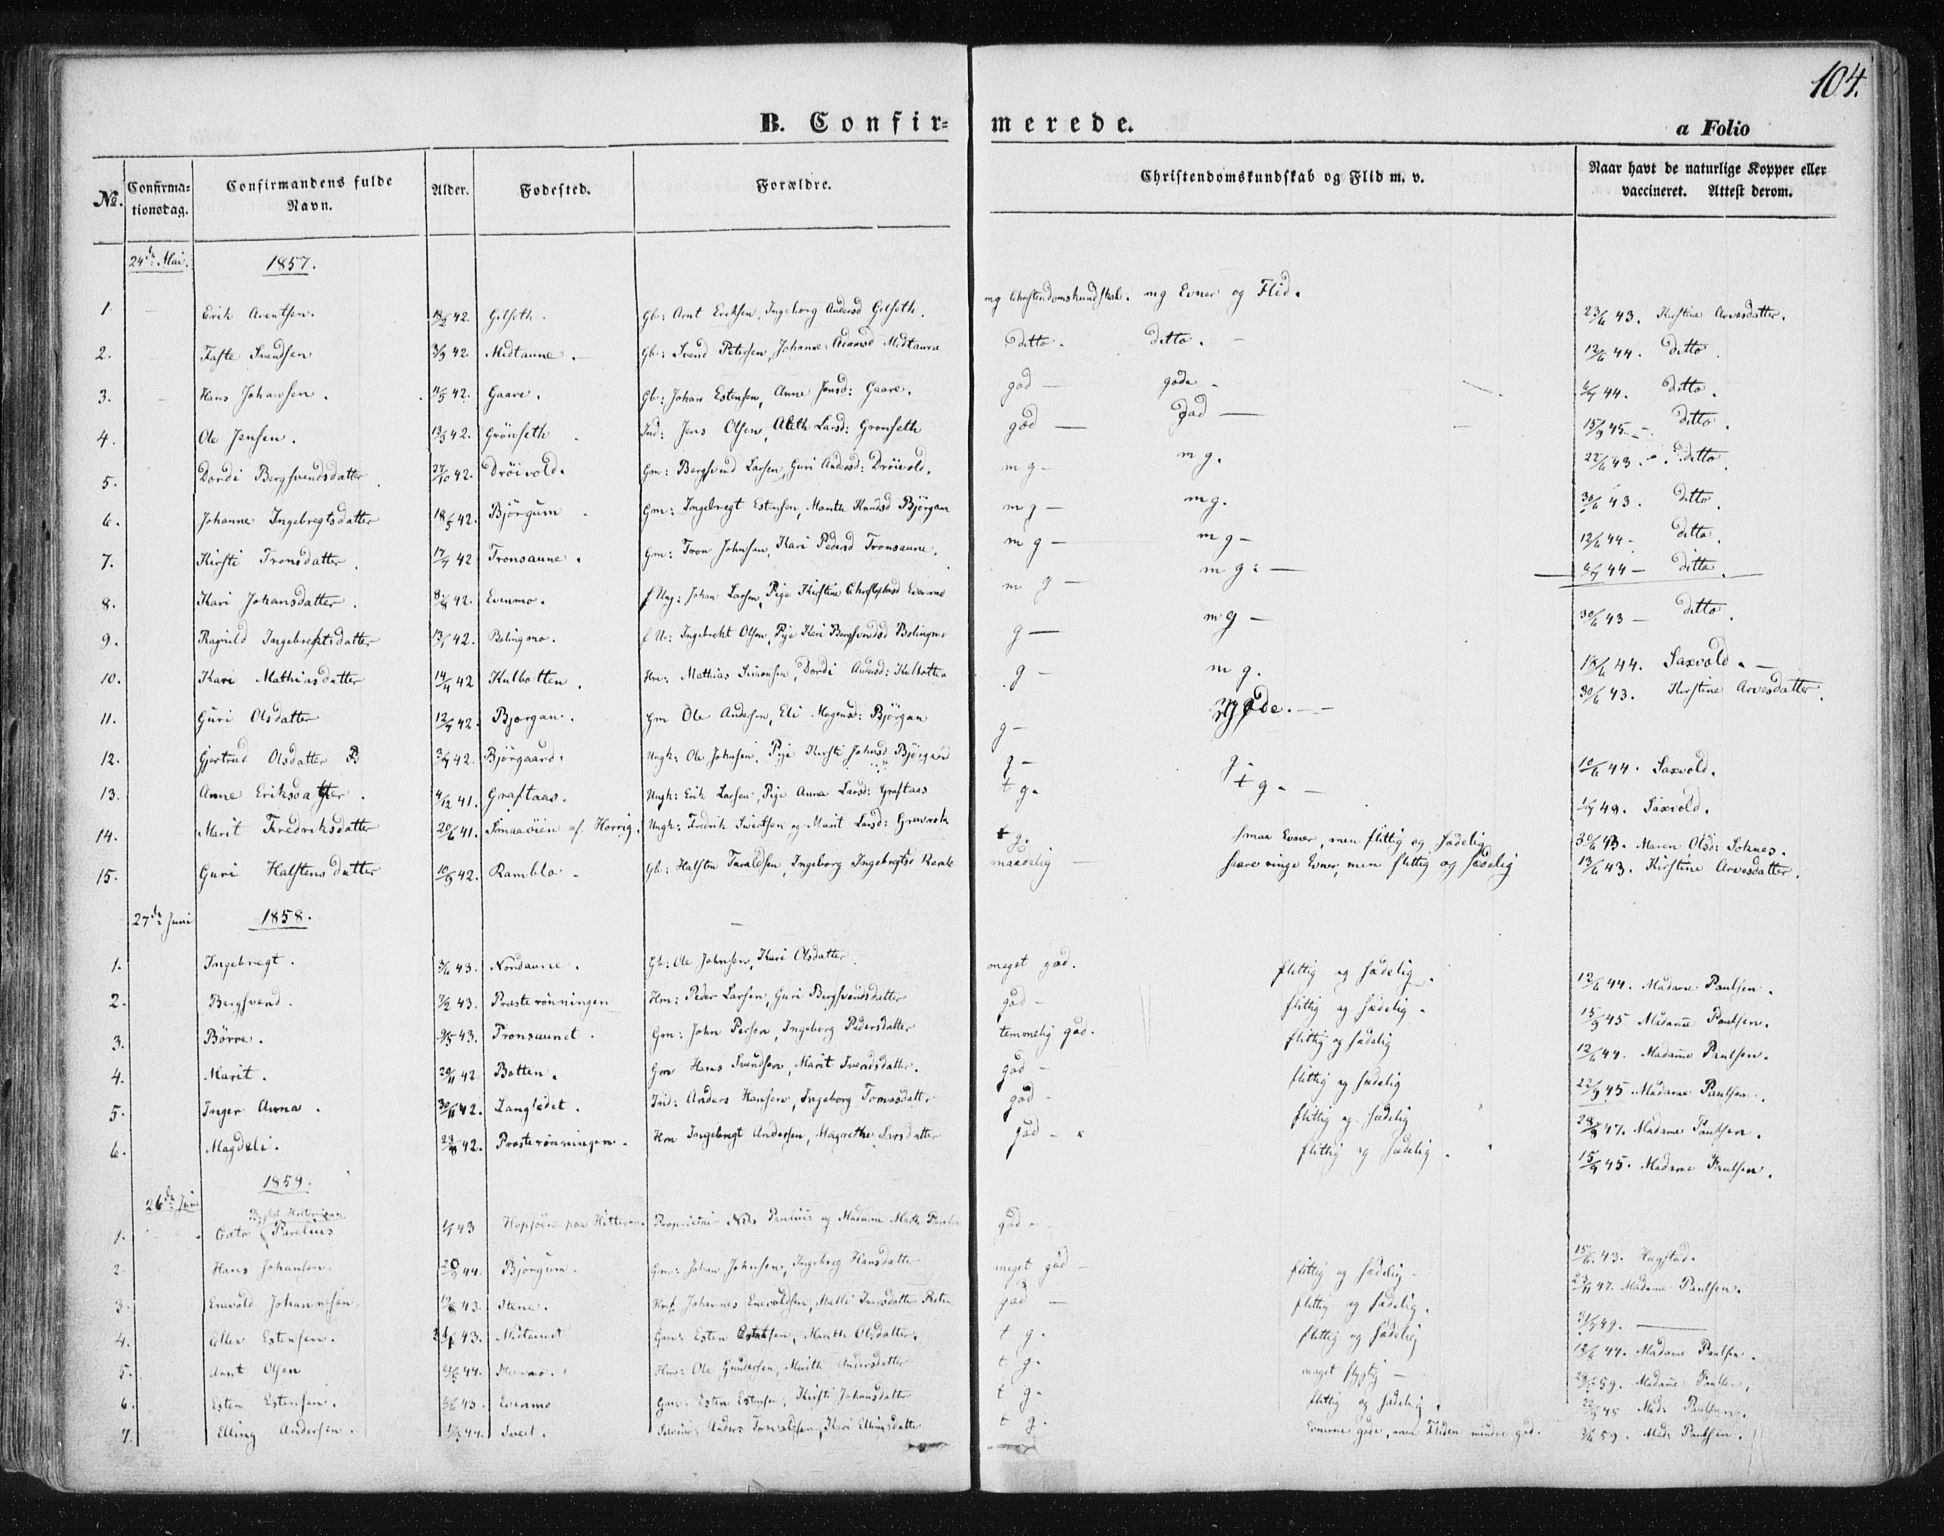 104.
B. Confirmerede.
a Folio
№. Confirmationsdag. Confirmandens fulde Navn. Alder. Fødested. Forældre. Christendomskundskab og Flid m. v. Naar havt de naturlige Kopper eller vaccineret. Attest derom.
24de Mai. 1857.
1. Erik Arentsen. 42. Gilseth. Gb: Arnt Eriksen, Ingeborg Andersd Gilseth. mg Christendomskundskab. mg Evner og Flid. 23/6 43. Kirstine Arvesdatter.
2. Taste Svendsen 42 Midtaune. Gb: Svend Petersen, Johanne Midtaune ditto. ditto. 12/6 44. ditto.
3. Hans Johansen. 42. Gaare. Gb: Johan Estensen, Anne Jonsd: Gaare. god gode 44. ditto.
4. Ole Jensen. 13/3 42. Grönseth Ind: Jens Olsen, Larsd: Gronseth god god 15/9 45 ditto.
5. Dordi Bergsvendsdatter. 27/10 42. Dröivold. Gm: Bergsvend Larsen, Guri Andersd: Dröivold. m g m g. 22/6 43. ditto
6. Johanne Ingebregtsdatter 18/5 42. Björgum Gm: Ingebregt Estensen, Marith Knudsd Björgan m g mg. 30/6 43. ditto.
7. Kirsti Tronsdatter 42 Tronsaune. Gm: Tron Johnsen, Kari Pedersd Tronsaune. m g m g 12/6 44 ditto.
8. Kari Johansdatter. 42. Evenmo. f Ung: Johan Larsen, Pige Kirstine Evenmo m g m g: 44 ditto.
9. Ragnild Ingebrektsdatter 42. Bolingmo. f U: Ingebrekt Olsen, Pige Kari Bergsvendsd Bolingmo g m g 30/6 43 ditto.
10. Kari Mathiasdatter 14/4 42 Kulbotten. Hm: Mathias Simonsen, Dordi Andersd: Kulbotten g m g. 18/6 44. Saxvold.
11. Guri Olsdatter 42. Bjorgan. Gm Ole Andersen, Eli Mogensd: Björgan g gode. 30/6 43. Kirstine Arvesdatter.
12. Gjertrud Olsdatter 42. Björgaard. Ungk: Ole Johnsen, Pige Kirsti Johnsd Björgaard g g 10/6 44. Saxvold.
13. Anne Eriksdatter. 4/12 41. Graftaas. Ungk: Erik Larsen, Pige Anna Larsd: Graftaas t g. t g. Saxvold.
14. Marit Fredriksdatter 20/6 41. Smaaöien af Horrig. Ungk: Fredrik Sivertsen og Marit Larsd: g. smaa Evner, men flittig og sædelig 43. Maren Olsd:
15. Guri Halstensdatter 10/9 42. Ramblo Gb: Halsten Taraldsen, Ingeborg Ingebregtsd maadelig svære ringe Evner, men flittig og sædelig 13/6 43. Kirstine Arvesdatter.
27de Juni 1858.
1. Ingebregt. 43. Nordaune. Gb: Ole Johnsen, Kari Olsdatter meget god. flittig og sædelig. 12/6 44. Madame Paulsen.
2. Bergsvend. 43. Prœsterönningen Hm: Peder Larsen, Guri Bergsvendsdatter god flittig og sædelig. 15/9 45 Madame Paulsen.
3. Börre. 43. Tronsaunet. Gm: John Persen, Ingeborg Pedersdatter temmelig god. flittig og sædelig 12/6 44. Madame Paulsen.
4. Marit. 42 Botten. Gm Hans Svendsen, Marit Svendsdatter. god flittig og sædelig 22/9 45 Madame Paulsen.
5. Inger Anna. 30/11 42. Langledet. Ind: Anders Hansen, Ingeborg Tomasdatter god flittig og sædelig 47. Madame Paulsen.
6. Magdeli. 42. Prœsterönningen. Hm Ingebregt Andersen, Magrethe god flittig og sædelig. 15/9 45. Madame Paulsen.
26de Juni 1859.
1. Cato Parelius 43 Hopsöen paa Hitteren. Proprietair Nils Parelius og Madame god
2. Hans Johansen. 44. Björgum. Gm: Johan Johnsen, Ingebrg Hansdatter meget god flittig og sædelig 15/6 43. Hagstad.
3. Enevold Johannesen 43. Stene. Johannes Enevoldsen, god flittig og sædelig. 23/11 47. Madame Paulsen.
4. Estensen. 43. Midtaunet Gm: Esten Estensen, Marith Olsdatter. t g. flittig og sædelig 49.
5. Arnt Olsen 44. Hm: Ole Gundersen, Marith Andersdatter t g. meget flygtig 12/6 44. Madame Paulsen.
6. Esten Estensen. 43. Evenmo Gm: Esten Estensen, Kirsti Johansdatter t g. flittig og sædelig. 59. Madame Paulsen.
7. Elling Andersen. 44. Anders Kari Ellingsdatter t g. Evnerne gode, men Fliden mindre god. 22/9 45 Mad: Paulsen.
59. Mad: Paulsen.